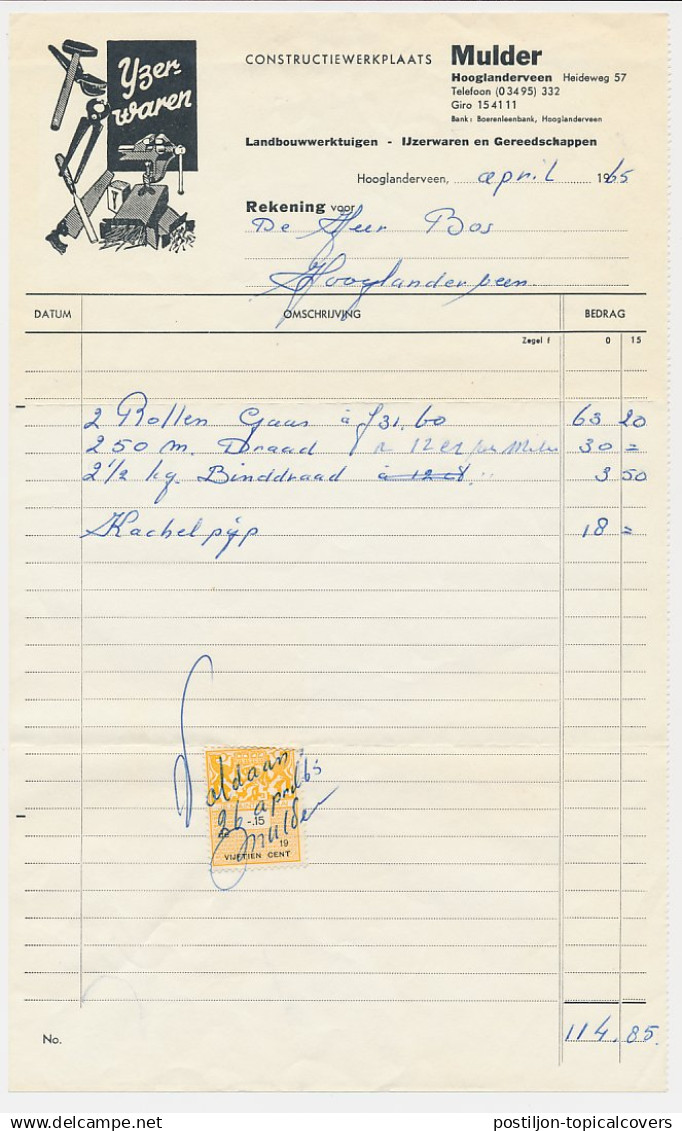 Yzer-
waren
CONSTRUCTIEWERKPLAATS Mulder
Hooglanderveen Heideweg 57
Telefoon (03495) 332
Giro 154111
Bank: Boerenleenbank, Hooglanderveen
Landbouwwerktuigen - IJzerwaren en Gereedschappen
Hooglanderveen, april 1965
Rekening voor
De Heer Bos
Hooglanderveen
DATUM OMSCHRIJVING BEDRAG
Zegel f 0 15
2 Rollen Gaas á f 31.60 63 20
250 m. Draad á 12 ct per Meter 30 =
2 1/2 kg. Binddraad á 12 ct. 3 50
Kachelpijp 18 =
Voldaan
26 april 65
Mulder
-.15
19
VIJFTIEN CENT
No. 114.85.
postiljon-topicalcovers delcampe.net